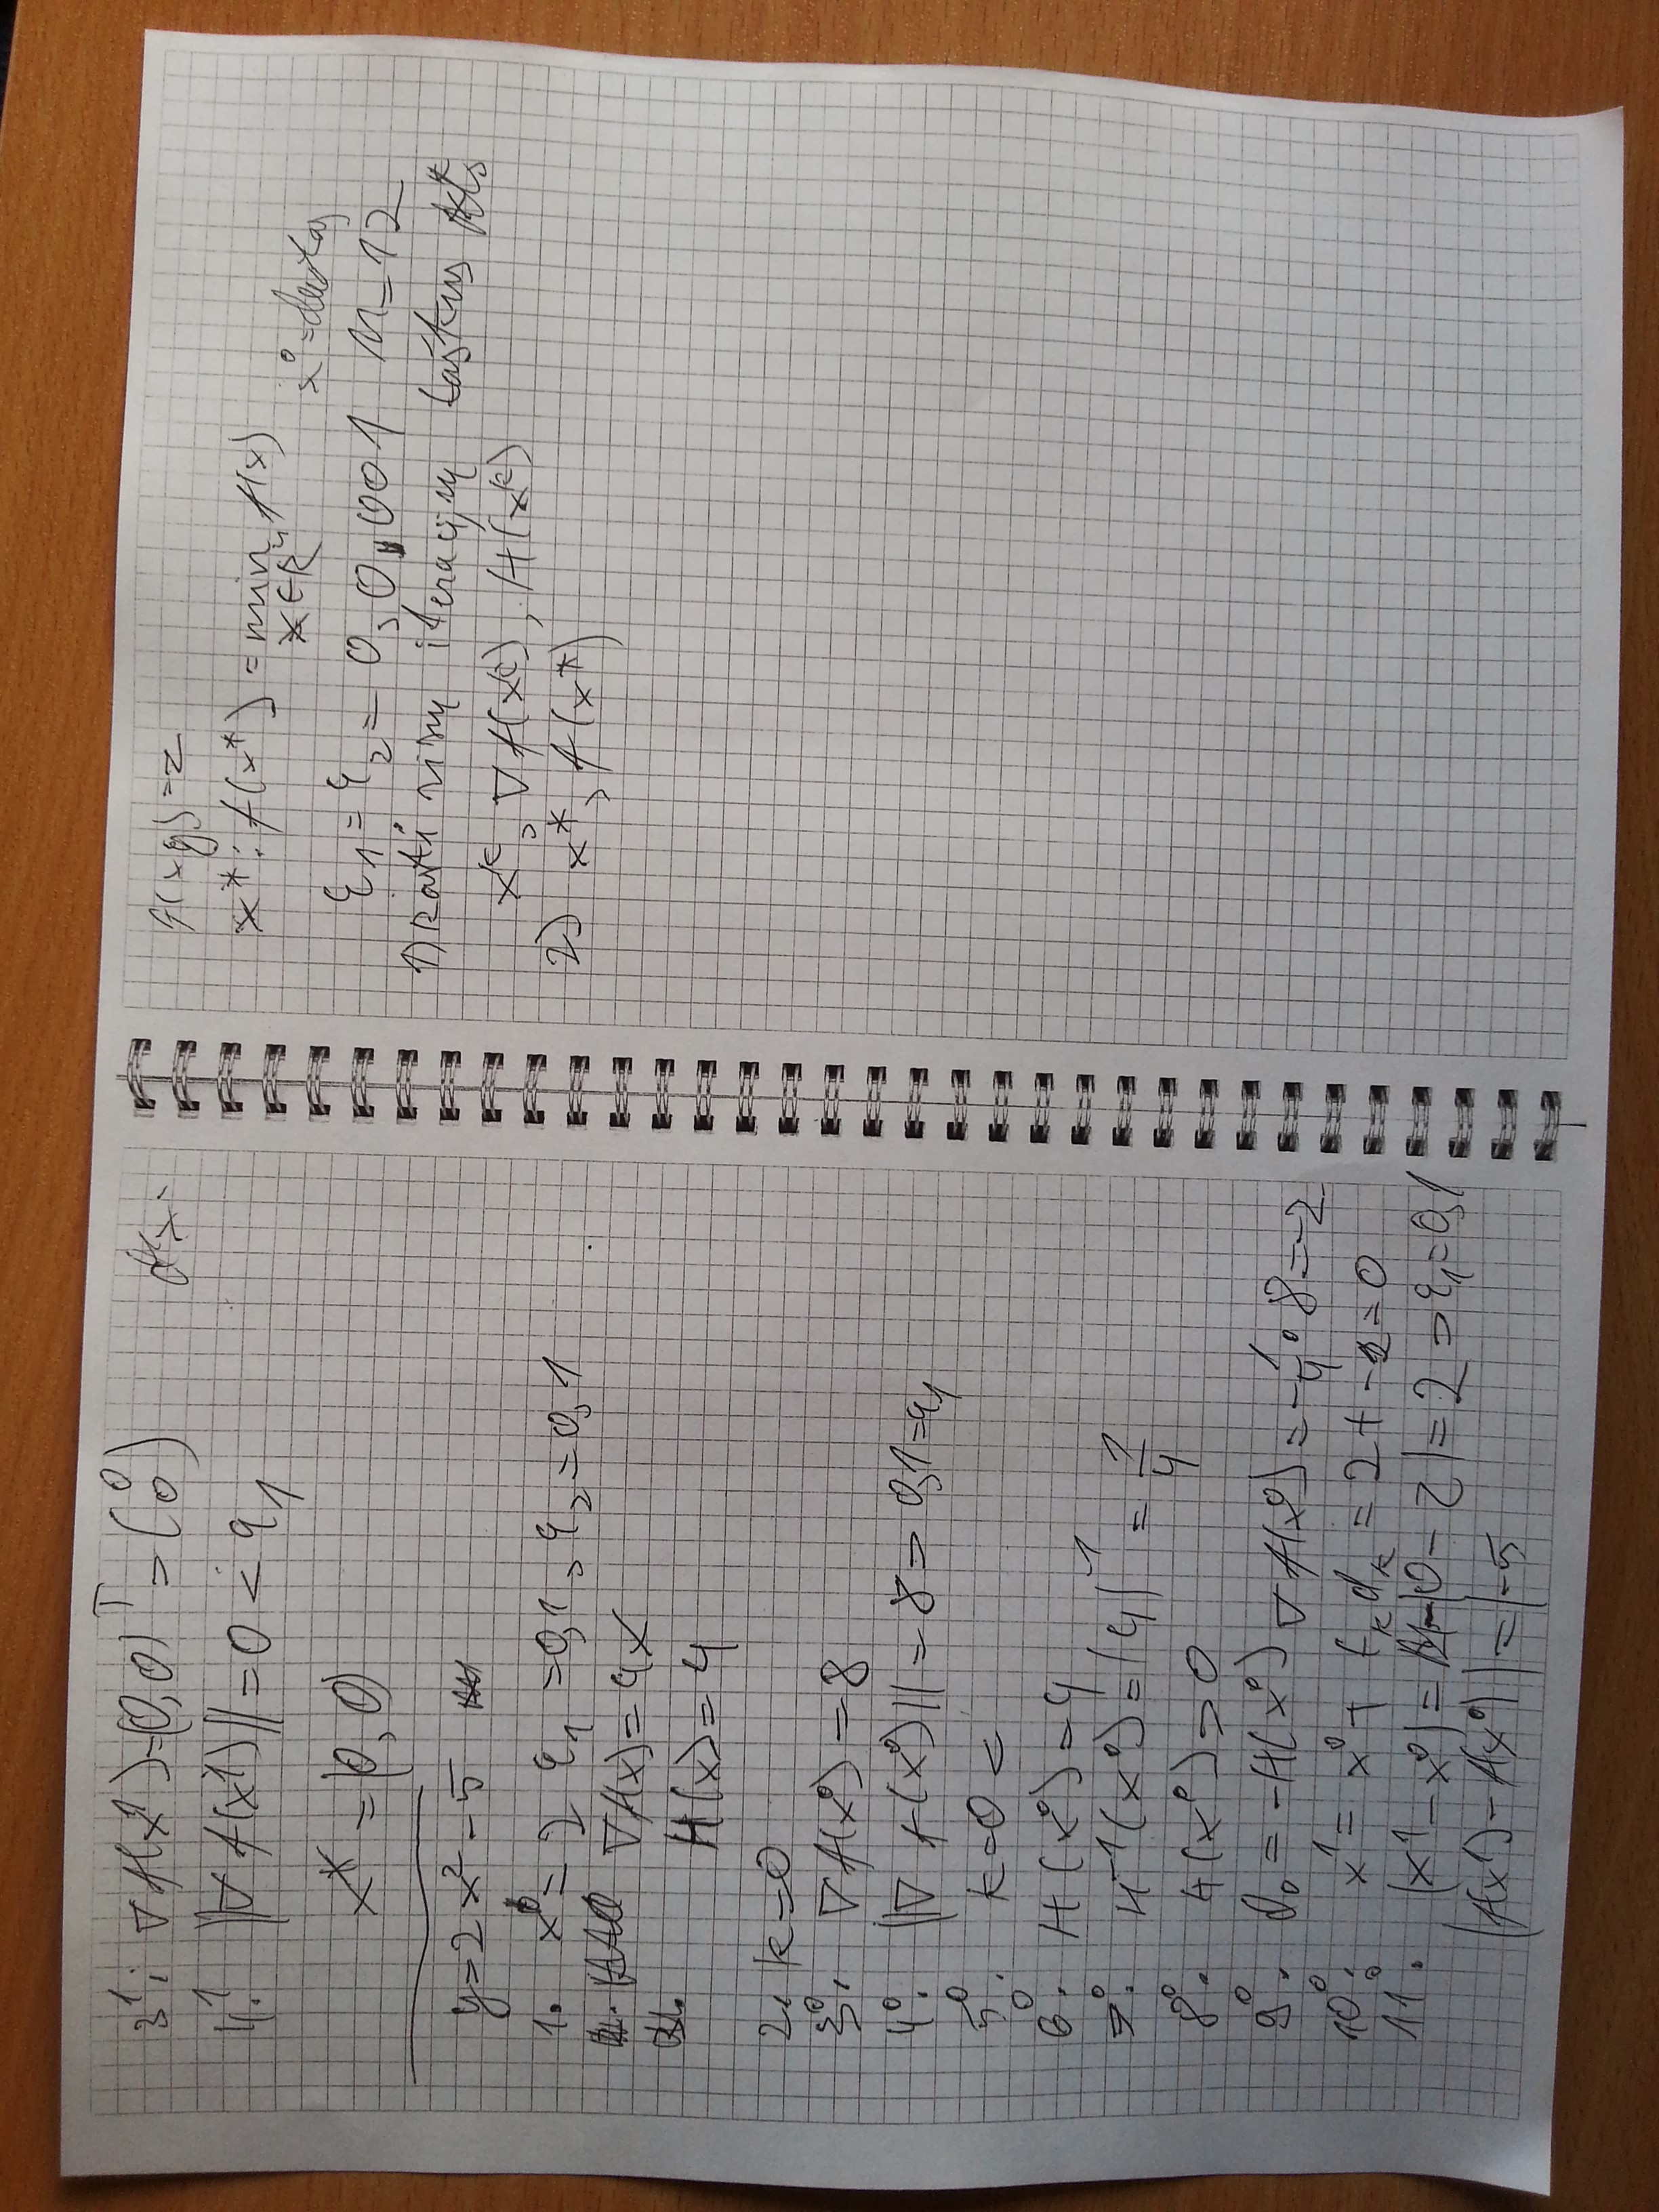 3¹. ∇f(x¹)=(0,0)ᵀ = (0 0)
4¹. ||∇f(x¹)|| = 0 < ε₁
x* = (0,0)
y=2x²-5
1. x⁰= 2 ε₁ =0,1, ε₂=0,1
∇f(x)= 4x
H(x)= 4
2. k=0
3⁰. ∇f(x⁰) = 8
4⁰. ||∇f(x⁰)|| = 8 > 0,1=ε₁
5⁰. k=0 <
6⁰. H(x⁰)=4
7⁰. H⁻¹(x⁰)=|4|⁻¹ = 1/4
8⁰. H(x⁰)>0
9⁰. d₀ = -H(x⁰) ∇f(x⁰)=-1/4·8=-2
10⁰. x¹= x⁰+ tₖdₖ = 2+-2=0
11⁰. |x¹-x⁰|= |0-2|=2 >ε₁=0,1
|f(x¹)-f(x⁰)|=|-5
f(xy)=z
x*: f(x*) = min f(x)
x∈Rⁿ
x⁰=duotas
ε₁=ε₂= 0,0,001 M=12
1) Rasti visų iteracijų taškus
xᵏ, ∇f(xᵏ), H(xᵏ)
2) x*, f(x*)